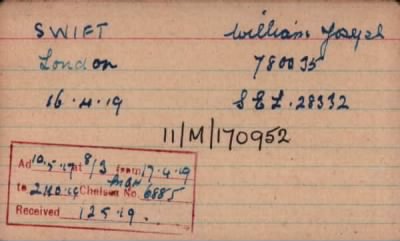 SWIFT William Joseph
London 780035
16.4.19 S&L.28332
11/M/170952
Ad 10.5.19 at 8/3 from 17.4.19
to 21.10.19 Chelsea No. 6885
Received 12 5 19.